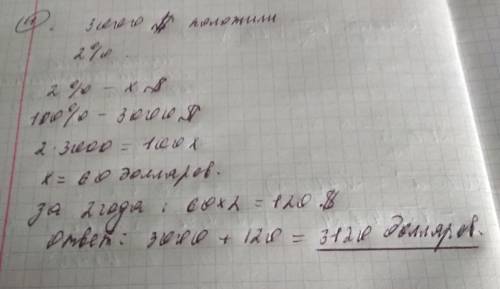 3000 $ положили
2%.
2% – x $
100% – 3000 $
2·3000 = 100x
x = 60 долларов.
за 2 года : 60x2 = 120 $
Ответ: 3000 + 120 = 3120 долларов.